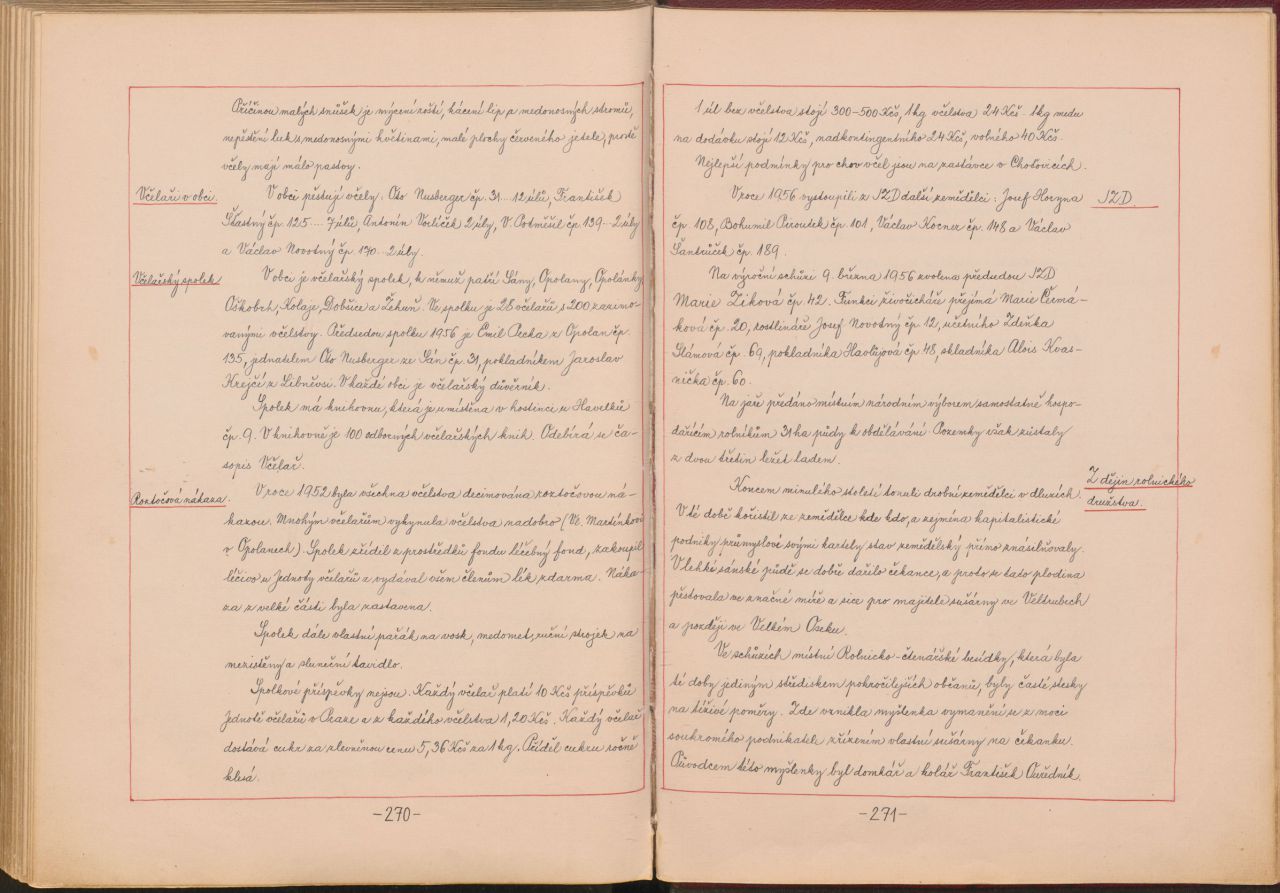 Příčinou malých snůšek je mýcení roští, kácení lip a medonosných stromů,
nepěstění luk s medonosnými květinami, malé plochy červeného jetele, protě
včely mají málo pastvy.
Včelaři v obci.
V obci pěstují včely: Oto Nusberger čp. 31 ... 12 úlů, František
Šťastný čp. 125 .... 7 úlů, Antonín Vodiček 2 úly, V. Potměšil čp. 139 ... 2 úly
a Václav Novotný čp. 170 ... 2 úly.
Včelařský spolek
V obci je včelařský spolek, k němuž patří Sány, Opolany, Opolánky
Oškobrh, Kolaje, Dobšice a Žehuň. Ve spolku je 28 včelařů s 200 zazimo-
vanými včelstvy. Předsedou spolku 1956 je Emil Pecka z Opolan čp.
135, jednatelem Oto Nusberger ze Sán čp. 31, pokladníkem Jaroslav
Krejčí z Libněvsi. V každé obci je včelařský důvěrník.
Spolek má knihovnu, která je umístěna v hostinci u Havelků
čp. 9. V knihovně je 100 odborných včelařských knih. Odebírá se ča-
sopis Včelař.
Roztočová nákaza.
V roce 1952 byla všechna včelstva decimována roztočovou ná-
kazou. Mnohým včelařům vyhynula včelstva nadobro (Ve. Martínkovi
v Opolanech). Spolek zřídil z prostředků fondu léčebný fond, zakoupil
léčivo u Jednoty včelařů a vydával všem členům lék zdarma. Náka-
za z velké části byla zastavena.
Spolek dále vlastní pařák na vosk, medomet, ruční strojek na
mezistěny a sluneční tavidlo.
Spolkové příspěvky nejsou. Každý včelař platí 10 Kčs příspěvků
Jednotě včelařů v Praze a z každého včelstva 1,20 Kčs. Každý včelař
dostává cukr za zlevněnou cenu 5,36 Kčs za 1 kg. Příděl cukru ročně
klesá.
-270-
1 úl bez včelstva stojí 300-500 Kčs, 1 kg včelstva 24 Kčs. 1 kg medu
na dodávku stojí 12 Kčs, nadkontingentního 24 Kčs, volného 40 Kčs.
Nejlepší podmínky pro chov včel jsou na zastávce v Choťovicích.
JZD.
V roce 1956 vystoupili z JZD další zemědělci: Josef Horyna
čp 108, Bohumil Piroutek čp. 101, Václav Kocner čp. 148 a Václav
Šantrůček čp. 189.
Na výroční schůzi 9. března 1956 zvolena předsedou JZD
Marie Ziková čp. 42. Funkci živočicháře přejímá Marie Čermá-
ková čp. 20, rostlináře Josef Novotný čp. 12, účetního Zdeňka
Slámová čp. 69, pokladníka Havlůjová čp. 48, skladníka Alois Kvas-
nička čp. 60.
Na jaře předáno místním národním výborem samostatně hospo-
dařícím rolníkům 31 ha půdy k obdělávání. Pozemky však zůstaly
z dvou třetin ležet ladem.
Z dějin rolnického
družstva.
Koncem minulého století tonuli drobní zemědělci v dluzích.
V té době kořistil ze zemědělce kde kdo, a zejména kapitalistické
podniky průmyslové svými kartely stav zemědělský přímo znásilňovaly.
V lehké sánské půdě se dobře dařilo čekance, a proto se tato plodina
pěstovala ve značné míře a sice pro majitele sušárny ve Veltrubech
a později ve Velkém Oseku.
Ve schůzích místní Rolnicko-čtenářské besídky, která byla
té doby jediným střediskem pokročilejších občanů, byly časté stesky
na tíživé poměry. Zde vznikla myšlenka vymanění se z moci
soukromého podnikatele zřízením vlastní sušárny na čekanku.
Původcem této myšlenky byl domkář a kolář František Ouředník.
-271-